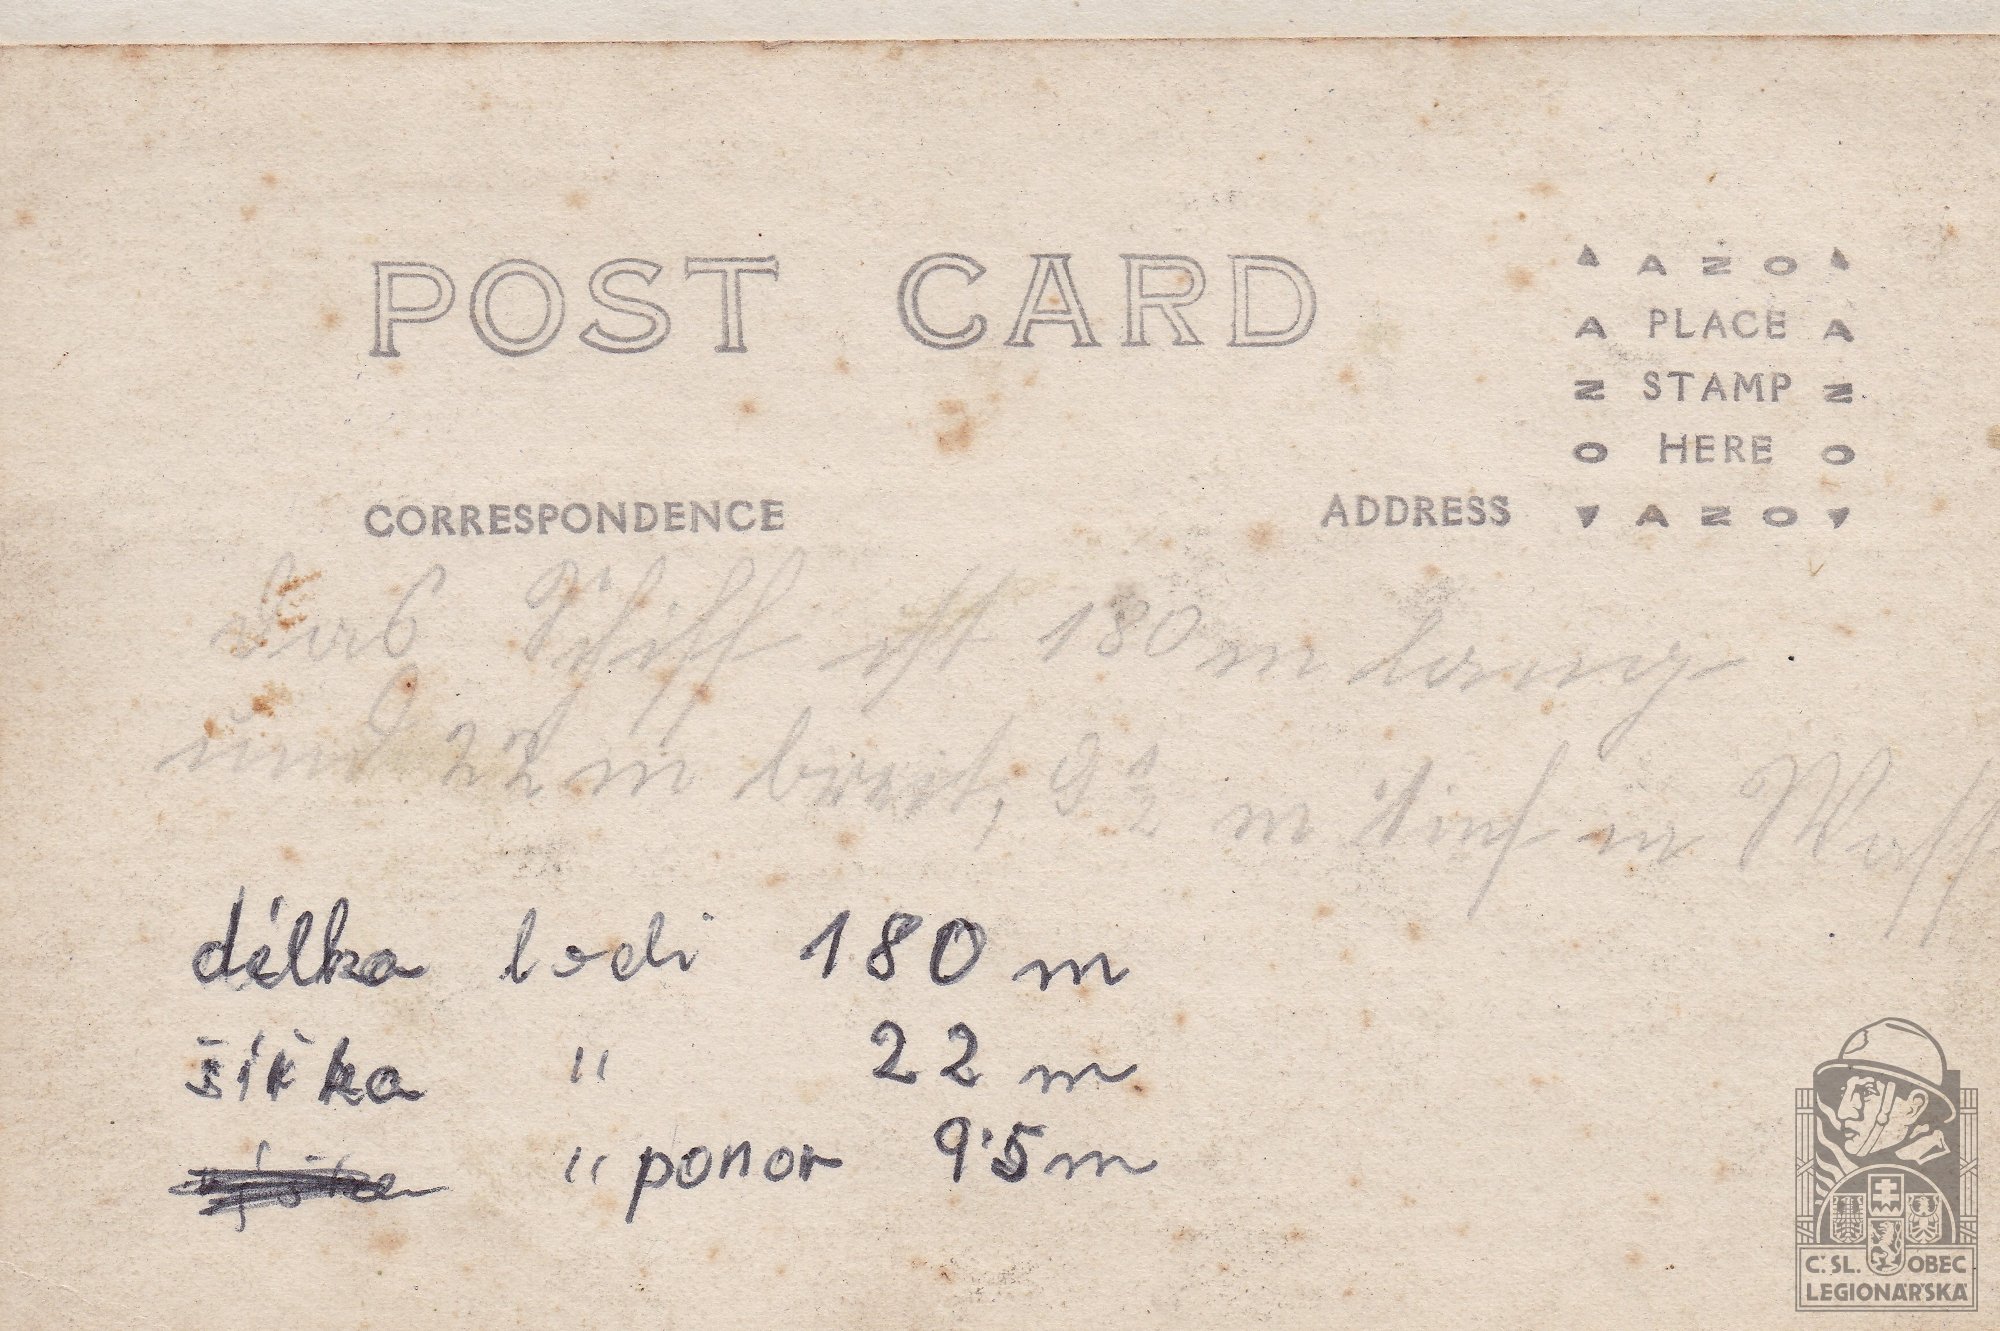 POST CARD
AZO
A PLACE A
N STAMP N
O HERE O
AZO
CORRESPONDENCE ADDRESS
das Schiff ist 180 m lang
und 22 m breit, 9 1/2 m tief in Wass
délka lodi 180 m
šířka " 22 m
" ponor 9·5 m
Č.SL. OBEC
LEGIONÁŘSKÁ